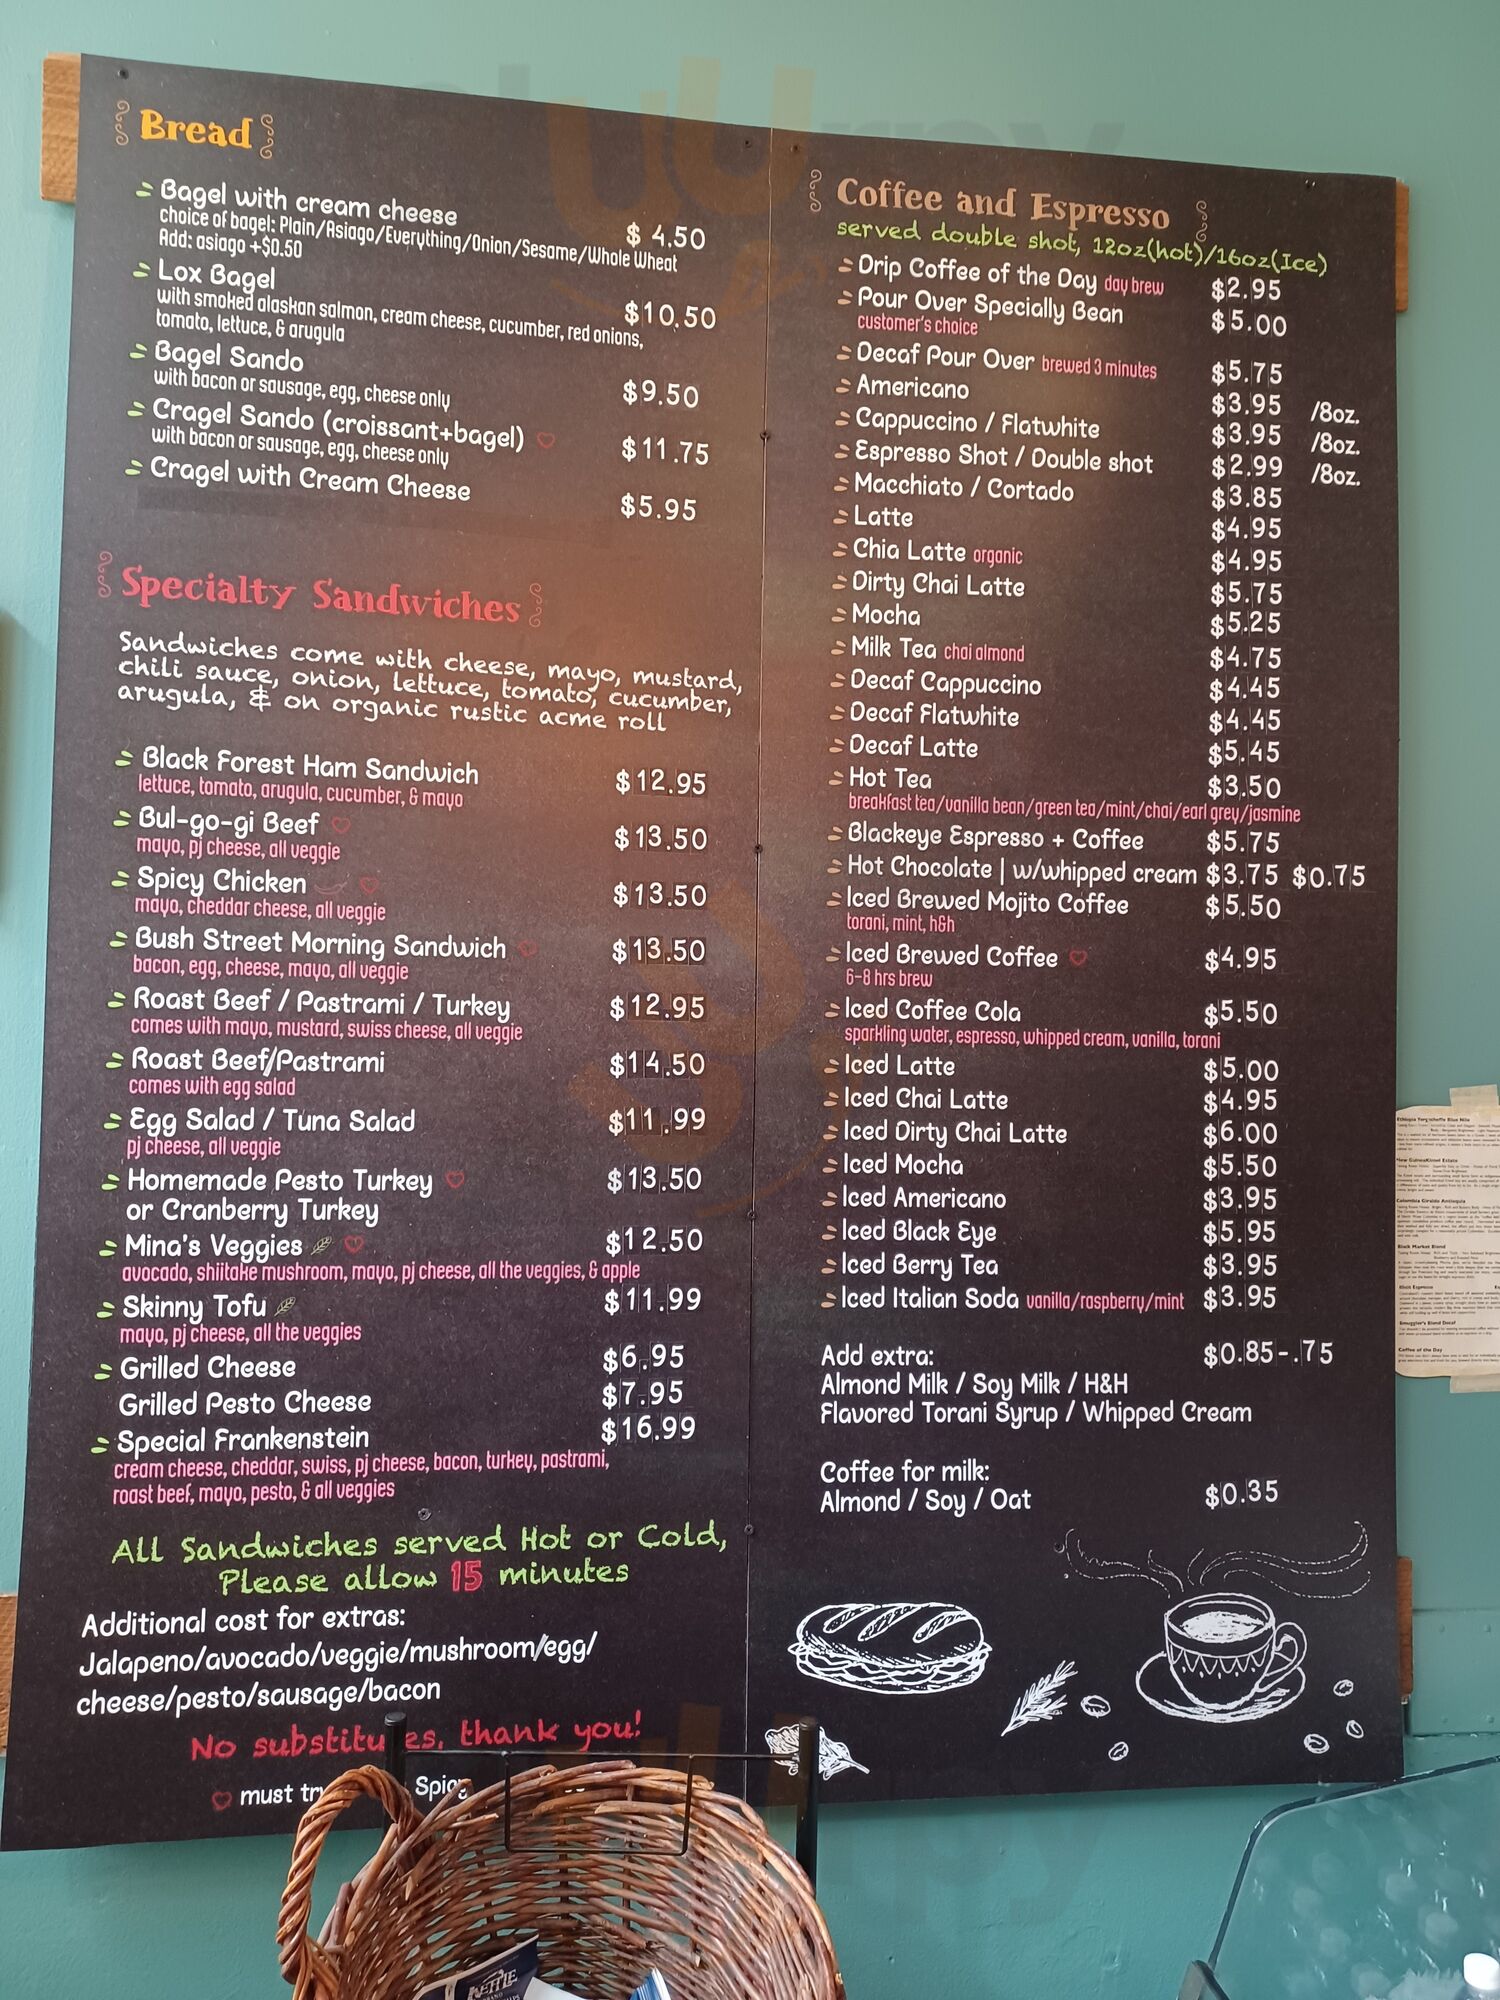 Bread
Bagel with cream cheese $4.50
choice of bagel: Plain/Asiago/Everything/Onion/Sesame/Whole Wheat
Add: asiago +$0.50
Lox Bagel $10.50
with smoked alaskan salmon, cream cheese, cucumber, red onions,
tomato, lettuce, & arugula
Bagel Sando $9.50
with bacon or sausage, egg, cheese only
Cragel Sando (croissant+bagel) $11.75
with bacon or sausage, egg, cheese only
Cragel with Cream Cheese $5.95
Specialty Sandwiches
Sandwiches come with cheese, mayo, mustard,
chili sauce, onion, lettuce, tomato, cucumber,
arugula, & on organic rustic acme roll
Black Forest Ham Sandwich $12.95
lettuce, tomato, arugula, cucumber, & mayo
Bul-go-gi Beef $13.50
mayo, pj cheese, all veggie
Spicy Chicken $13.50
mayo, cheddar cheese, all veggie
Bush Street Morning Sandwich $13.50
bacon, egg, cheese, mayo, all veggie
Roast Beef / Pastrami / Turkey $12.95
comes with mayo, mustard, swiss cheese, all veggie
Roast Beef/Pastrami $14.50
comes with egg salad
Egg Salad / Tuna Salad $11.99
pj cheese, all veggie
Homemade Pesto Turkey $13.50
or Cranberry Turkey
Mina's Veggies $12.50
avocado, shiitake mushroom, mayo, pj cheese, all the veggies, & apple
Skinny Tofu $11.99
mayo, pj cheese, all the veggies
Grilled Cheese $6.95
Grilled Pesto Cheese $7.95
Special Frankenstein $16.99
cream cheese, cheddar, swiss, pj cheese, bacon, turkey, pastrami,
roast beef, mayo, pesto, & all veggies
All Sandwiches served Hot or Cold,
Please allow 15 minutes
Additional cost for extras:
Jalapeno/avocado/veggie/mushroom/egg/
cheese/pesto/sausage/bacon
No substitutes, thank you!
must try
Coffee and Espresso
served double shot, 12oz(hot)/16oz(Ice)
Drip Coffee of the Day day brew $2.95
Pour Over Specially Bean $5.00
customer's choice
Decaf Pour Over brewed 3 minutes $5.75
Americano $3.95 /8oz.
Cappuccino / Flatwhite $3.95 /8oz.
Espresso Shot / Double shot $2.99 /8oz.
Macchiato / Cortado $3.85
Latte $4.95
Chia Latte organic $4.95
Dirty Chai Latte $5.75
Mocha $5.25
Milk Tea chai almond $4.75
Decaf Cappuccino $4.45
Decaf Flatwhite $4.45
Decaf Latte $5.45
Hot Tea $3.50
breakfast tea/vanilla bean/green tea/mint/chai/earl grey/jasmine
Blackeye Espresso + Coffee $5.75
Hot Chocolate | w/whipped cream $3.75 $0.75
Iced Brewed Mojito Coffee $5.50
torani, mint, h&h
Iced Brewed Coffee $4.95
6-8 hrs brew
Iced Coffee Cola $5.50
sparkling water, espresso, whipped cream, vanilla, torani
Iced Latte $5.00
Iced Chai Latte $4.95
Iced Dirty Chai Latte $6.00
Iced Mocha $5.50
Iced Americano $3.95
Iced Black Eye $5.95
Iced Berry Tea $3.95
Iced Italian Soda vanilla/raspberry/mint $3.95
Add extra: $0.85-.75
Almond Milk / Soy Milk / H&H
Flavored Torani Syrup / Whipped Cream
Coffee for milk:
Almond / Soy / Oat $0.35
Colombia Giraldo Antioquia
Black Market Blend
Smuggler's Blend Decaf
Coffee of the Day
KETTLE